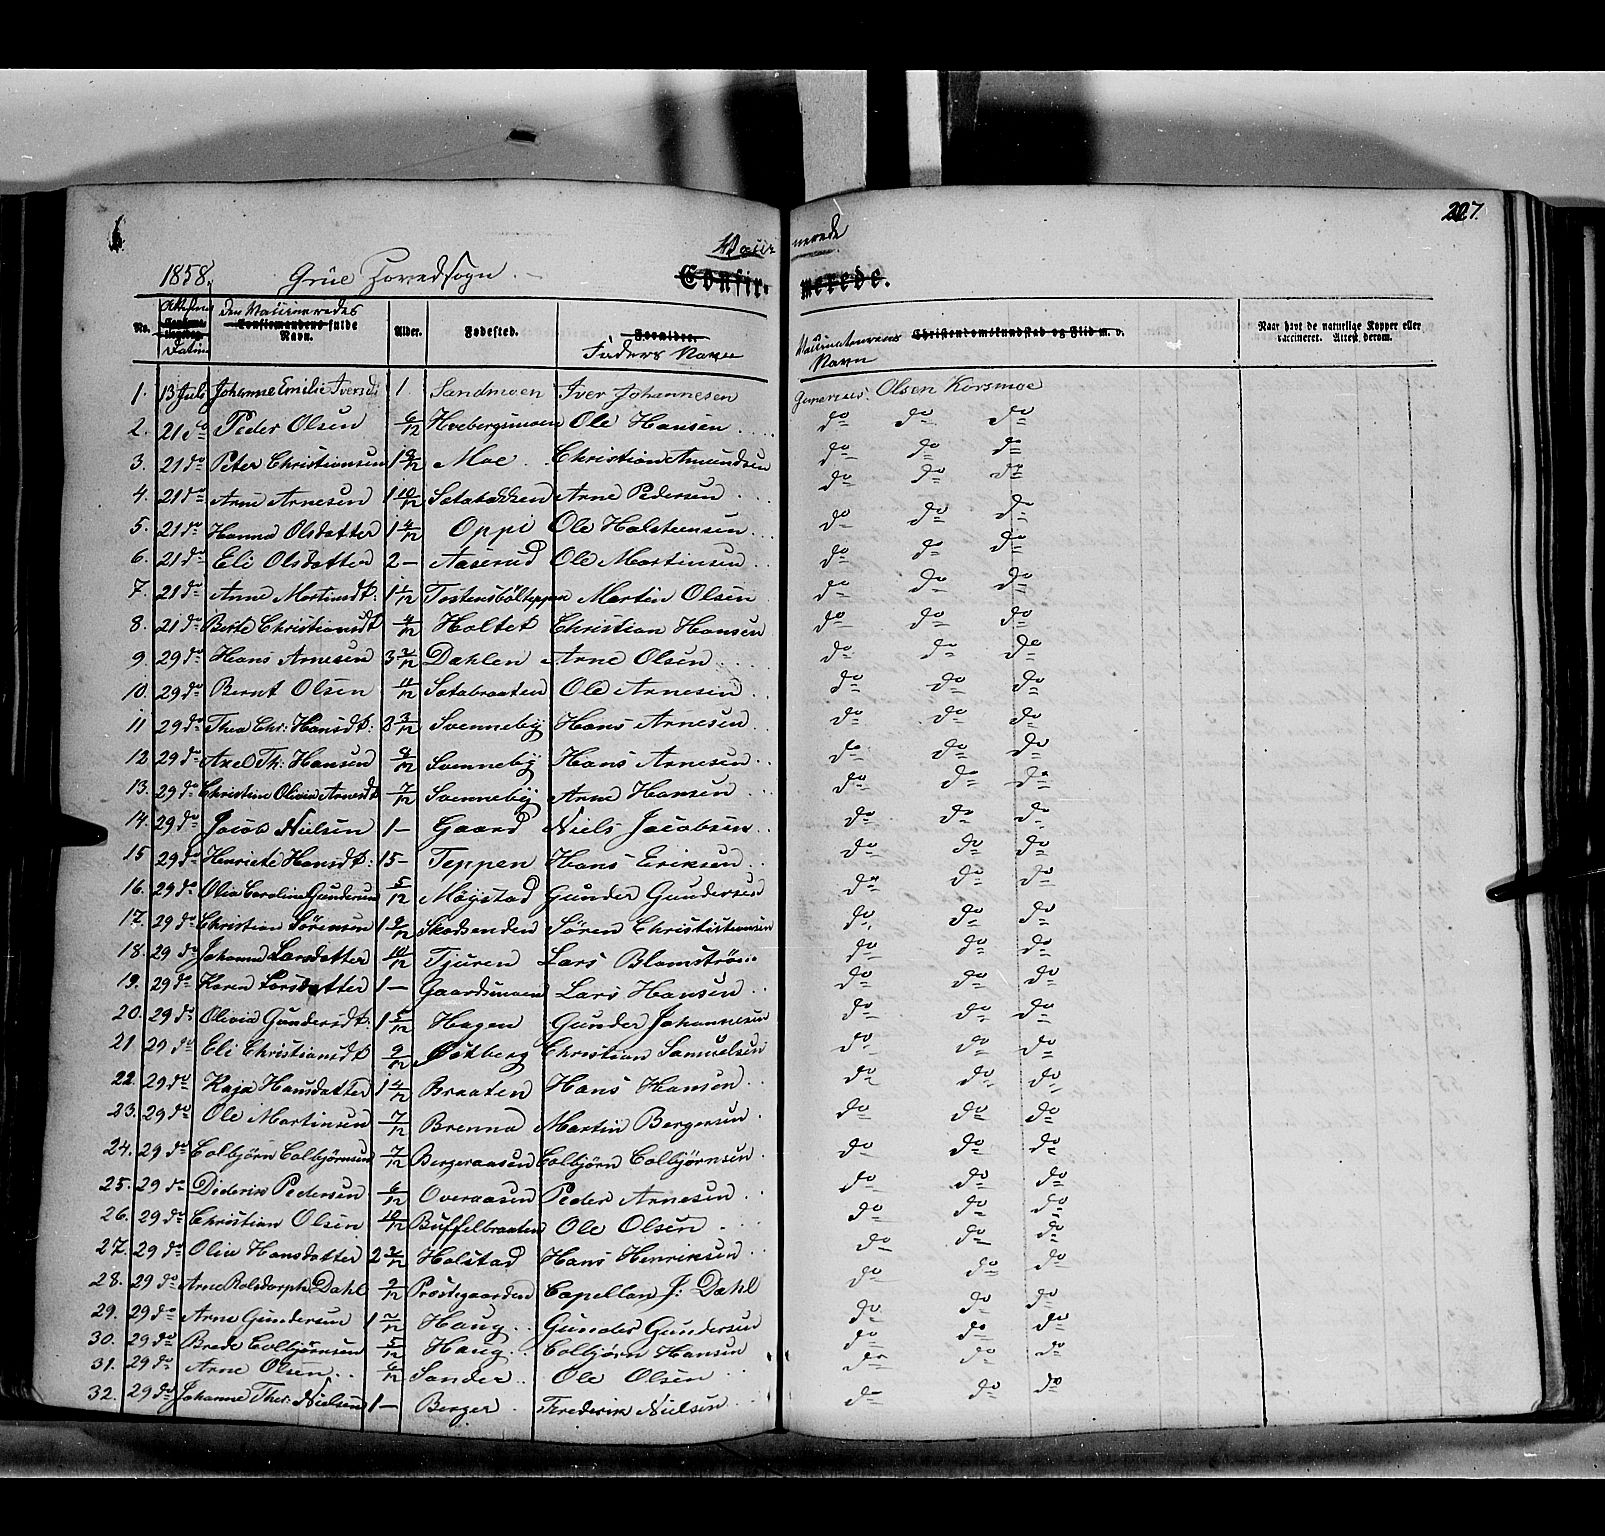 227.
Vacci nerede
1858. Grue Hovedsogn.
Confir- merede.
No. Attestens Datum Den Vaccineredes Confirmandens fulde Navn. Alder. Fødested. Forældre. Faders Navn Vaccinateurens Navn Christendomskundskab og Flid m. v. Naar havt de naturlige Kopper eller vaccineret. Attest derom.
1. 13 Juli Johanne Emilie Iversdt 1. Sandmoen Iver Johannesen Olsen Korsmoe
2. 21 do Peder Olsen 6/12 Hvebergsmoen Ole Hansen do do do
3. 21 do Peter Christiansen 1 9/12 Moe Christian Amundsen do do do
4. 21 do Arne Arnesen 1 10/12 Sætabakken Arne Pedersen do do do
5. 21 do Hanna Olsdatter 1 4/12 Oppi Ole Halsteensen do do do
6. 21 do Eli Olsdatter 2 – Aaserud Ole Martinsen do do do
7. 21 do Anne Martinsdt: 1 1/12 Tostensbölteppen Martin Olsen do do do
8. 21 do Berte Christiansdt 4/12 Holtet Christian Hansen do do do
9 29 do Hans Arnesen 3 3/12 Dahlen Arne Olsen do do do
10. 29 do Bernt Olsen 11/12 Sætabraaten Ole Arnesen do do do
11 29 do Thea Chr: Hansdt: 3 3/12 Svenneby Hans Arnesen do do do
12 29 do Axel Th: Hansen 9/12 Svenneby Hans Arnesen do do do
13. 29 do Christine Olivia Arnesdt 7/12 Svenneby Arne Hansen do do do
14. 29 do Jacob Nielsen 1 – Gaard Niels Jacobsen do do do
15 29 do Henriete Hansdt: 15 – Teppen Hans Eriksen do do do
16. 29 do Olia Carolina Gundersen 5/12 Møystad Gunder Gundersen do do do
17. 29 do Christian Sörensen 1 9/12 Skadsenden Sören Christistiansen do do do
18. 29 do Johanne Larsdatter 10/12 Tjuren Lars Blomströ do do do
19. 29 do Karen Larsdatter 1 – Gaardsmoen Lars Hansen do do do
20. 29 do Olivia Gundersdt. 1 5/12 Hagen Gunder Johannesen do do do
21 29 do Eli Christiansdt 9/12 Christian Samuelsen do do do
22. 29 do Kaja Hansdatter 1 4/12 Braaten Hans Hansen do do do
23. 29 do Ole Martinsen 7/12 Brenna Martin Bergersen do do do
24. 29 do Colbjörn Colbjørnsen 7/12 Bergeraasen Colbjörn Colbjørnsen do do do
25. 29 do Diderik Pedersen 6/12 Overaasen Peder Arnesen do do do
26. 29 do Christian Olsen 10/12 Buffelbraaten Ole Olsen do do do
27. 29 do Olia Hansdatter 2 3/12 Holstad Hans Henriksen do do do
28. 29 do Arne Rolsdorph Dahl 9/12 Prostegaarden Capellan J: Dahl do do do
29. 29 do Arne Gundersen 1 2/12 Haug Gunder Gundersen do do do
30. 29 do Brede Colbjørnsen 5/12 Haug Colbjörn Hansen do do do
31. 29 do Arne Olsen 6/12 Sander Ole Olsen do do do
32. 29 do Johanne Ther: Nielsen 1 – Berger Frederik Nielsen do do do